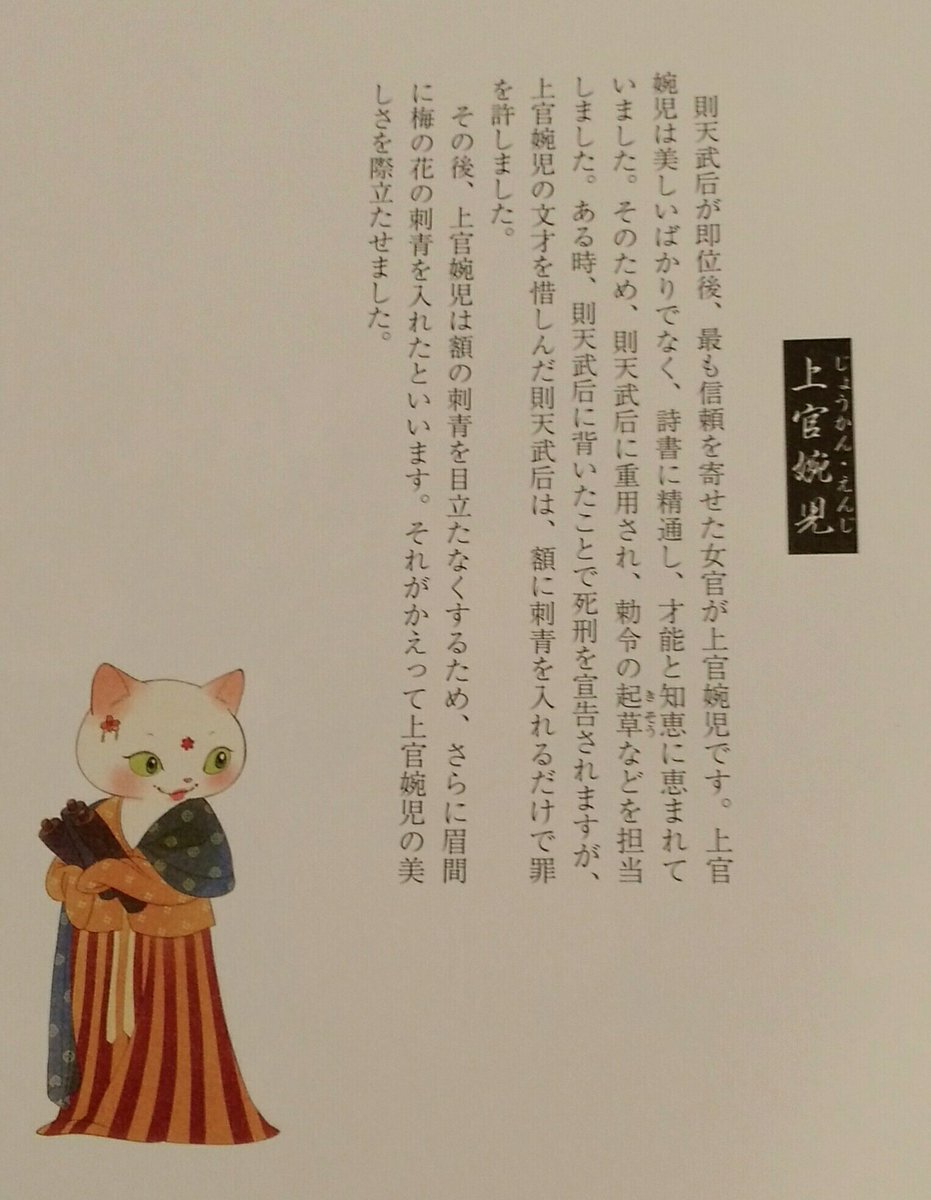 じょうかん・えんじ
上官婉児
則天武后が即位後、最も信頼を寄せた女官が上官婉児です。上官
婉児は美しいばかりでなく、詩書に精通し、才能と知恵に恵まれて
いました。そのため、則天武后に重用され、勅令の起草などを担当
きそう
しました。ある時、則天武后に背いたことで死刑を宣告されますが、
上官婉児の文才を惜しんだ則天武后は、額に刺青を入れるだけで罪
を許しました。
その後、上官婉児は額の刺青を目立たなくするため、さらに眉間
に梅の花の刺青を入れたといいます。それがかえって上官婉児の美
しさを際立たせました。